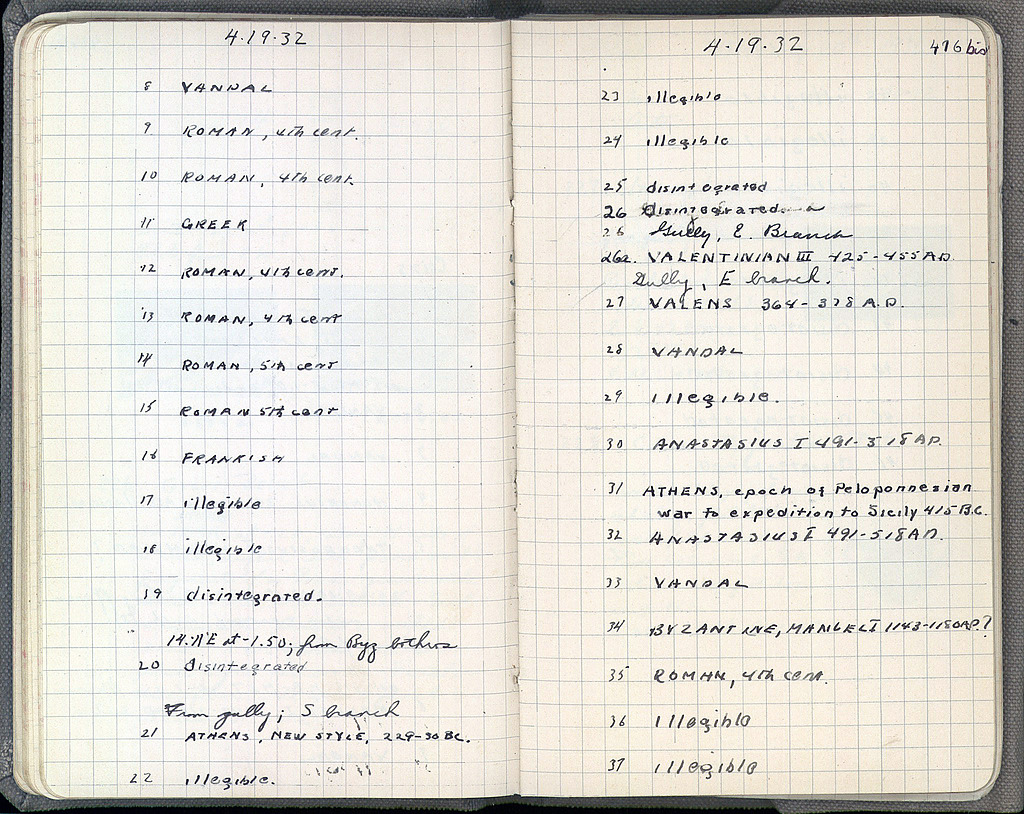 4·19·32
8 VANDAL
9 ROMAN, 4th cent.
10 ROMAN, 4th cent.
11 GREEK
12 ROMAN, 4th cent.
13 ROMAN, 4th cent
14 ROMAN, 5th cent
15 ROMAN 5th cent
16 FRANKISH
17 illegible
18 illegible
19 disintegrated.
at -1.50; from Byz bothros
20 disintegrated
From gully; S branch
21 ATHENS, NEW STYLE, 229-30 BC.
22 illegible.
4·19·32
476 bis
23 illegible
24 illegible
25 disintegrated
26 Disintegrated
26 Gully, E. Branch
26a. VALENTINIAN III 425-455 AD.
Gully, E branch.
27 VALENS 364-378 A.D.
28 VANDAL
29 illegible.
30 ANASTASIUS I 491-518 AD.
31 ATHENS, epoch of Peloponnesian
war to expedition to Sicily 415 B.C.
32 ANASTASIUS I 491-518 AD.
33 VANDAL
34 BYZANTINE, MANUEL I 1143-1180 AD?
35 ROMAN, 4th cent.
36 illegible
37 illegible